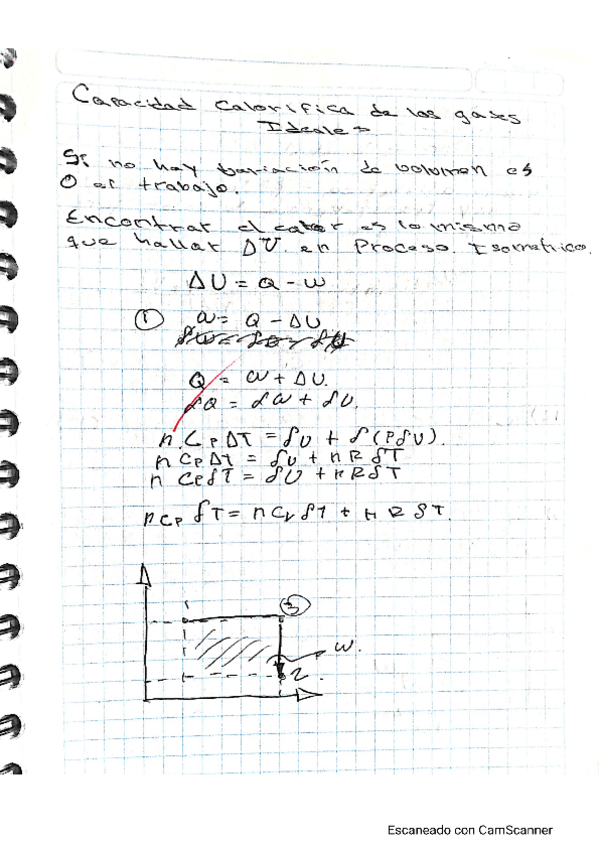 Capacidad Calorifica de los gases
Ideales
Si no hay variación de volumen es
0 el trabajo.
Encontrar el calor es lo mismo
que hallar ΔU en Proceso Isometrico.
ΔU = Q - W
① W = Q - ΔU
Q = W + ΔU.
δQ = δW + δU.
n Cp ΔT = δU + δ(PδU).
n Cp Δt = δU + nRδT
n Cp δT = δU + nRδT
n Cp δT = n Cv δT + nRδT.
③
W.
2.
Escaneado con CamScanner